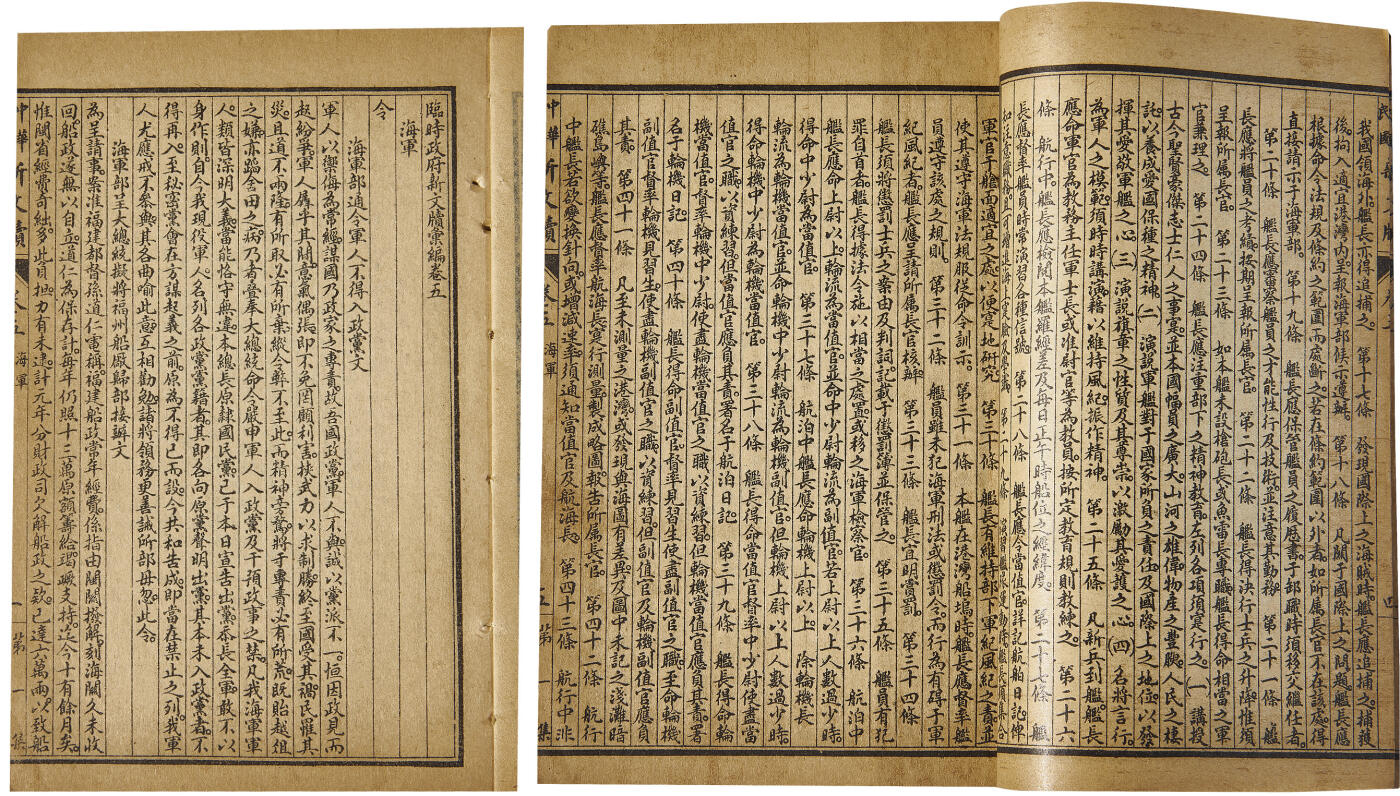 臨時政府新文牘彙編卷五
海軍
令
海軍部通令軍人不得入政黨文
軍人以禦侮為常經。謀國乃政家之專責。故吾國政黨。軍人不與。誠以黨派不一。恒因政見而
起紛爭。軍人廁半其間。意氣偶張。即不免罔顧利害。挾武力以求制勝。終至國受其禍。民罹其
災。且道不兩隆。有所取必有所棄。縱令弊不至此。而精神旁騖。將于專責必有所荒。既貽越俎
之嫌。亦蹈舍田之病。乃者疊奉大總統命令。嚴申軍人入政黨及干預政事之禁。凡我海軍軍
人。類皆深明大義。當能恪守無違。本總長原隸國民黨。已于本日宣告出黨。忝長全軍。敢不以
身作則。自今我現役軍人。名列各政黨黨籍者。其即各向原黨聲明出黨。其本未入政黨者。不
得再入。至秘密黨會。在方謀起義之前。原為不得已而設。今共和告成。即當在禁止之列。我軍
人尤應戒不參與。其各曲喻此意。互相勸勉。諸將領務更善誡所部毋忽。此令
海軍部呈大總統擬將福州船廠歸部接辦文
為呈請事。案准福建都督孫道仁電稱。福建船政常年經費。係指由閩關撥解。刻海關久未收
回。船政遂無以自立。道仁為保存計。每年仍照十三萬原額籌給。竭蹶支持。迄今十有餘月矣。
惟閩省經費奇絀。多此負担。力有未逮。計元年分財政司欠解船政之款。已達十萬兩。以致船
中華新文牘 卷五 海軍 一 第一集
民國
我國領海外。艦長亦得追捕之。 第十七條 發現國際上之海賊時。艦長應追捕之。捕獲
後。拘入適宜港灣內。呈報海軍部候示遵辦。 第十八條 凡關于國際上之問題。艦長應
根據命令法規及條約之範圍而處斷之。若在條約範圍以外者。如所屬長官不在該處。得
直接請示于海軍部。 第十九條 艦長應保管艦員之履歷書。于部職時。須移交繼任者。
第二十條 艦長應審察艦員之才能性行及技術。並注意其勤務。 第二十一條 艦
長應將艦員之考績。按期呈報所屬長官。 第二十二條 艦長得決行士兵之升降。惟須
呈報所屬長官。 第二十三條 如本艦未設槍砲長或魚雷長專職。艦長得命相當之軍
官兼理之。 第二十四條 艦長應注重部下之精神教育。左列各項。須寔行之。(一)講授
古今聖賢豪傑志士仁人之事寔。並本國幅員之廣大。山河之雄偉。物產之豐腴。人民之棲
託。以養成愛國保種之精神。(二)演說軍艦對于國家所負之責任。及國際上之地位。以發
揮其愛敬軍艦之心。(三)演說旗章之性質及其尊崇。以激勵其愛護之心。(四)名將言行。
為軍人之模範。須時時講演。藉以維持風紀振作精神。 第二十五條 凡新兵到艦。艦長
應命軍官為教務主任。軍士長或准尉官等為教員。按所定教育規則教練之。 第二十六
條 航行中。艦長應檢閱本艦羅經差及每日正午時船位之經緯度。 第二十七條 艦
長應督率艦員時常演習各種信號。 第二十八條 艦長應令當值官詳記航船日記。俾
軍官于艦面適宜之處。以便寔地研究。 第三十條 艦長有維持部下軍紀風紀之責。並
使其遵守海軍法規。服從命令訓示。 第三十一條 本艦在港灣船塢時。艦長應督率艦
員遵守該處之規則。 第三十二條 艦員雖未犯海軍刑法或懲罰令。而行為有碍于軍
紀風紀者。艦長應呈請所屬長官核辦。 第三十三條 艦長宜明賞罰。 第三十四條
艦長須將懲罰士兵之案由及判詞。記載于懲罰薄。並保管之。 第三十五條 艦員有犯
罪自首者。艦長得據法令施以相當之處置。或移之海軍檢察官。 第三十六條 航泊中
艦長應命上尉以上。輪流為當值官。並命中少尉輪流為副值官。若上尉以上人數過少時。
得命中少尉為當值官。 第三十七條 航泊中艦長應命輪機長
輪流為輪機當值官。並命輪機中少尉輪流為輪機副值官。但輪機上尉以上人數過少時。
得命輪機中少尉為輪機當值官。 第三十八條 艦長得命當值官督率中少尉使盡副
值官之職。以資練習。但當值官應負其責。署名于航泊日記。 第三十九條 艦長得命輪
機當值官。督率輪機中少尉使盡輪機當值官之職。以資練習。但輪機當值官應負其責。署
名于輪機日記。 第四十條 艦長得命副值官督率見習生使盡副值官之職。至命輪機
副值官督率輪機見習生使盡輪機副值官之職以資練習。但副值官及輪機副值官應負
其責。 第四十一條 凡至未測量之港灣。或發現與海圖有差異。及圖中未記之淺灘暗
礁島嶼等。艦長應督率航海長寔行測量。製成略圖。報告所屬長官。 第四十二條 航行
中艦長若欲變換針向。或增減速率。須通知當值官及航海長。 第四十三條 航行中非
中華新文牘 卷五 海軍 五 第一集